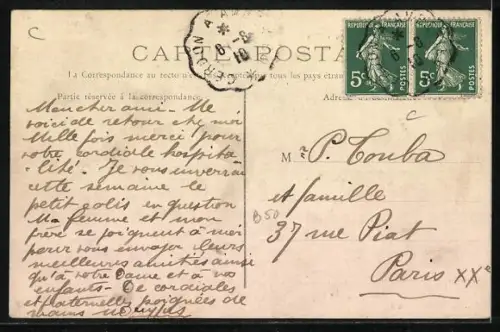 C
CARTE POSTALE
La Correspondance au recto n'est tous les pays étran
Partie réservée à la correspondance.
Adres
CERDON A
6-8
10
6-8
10
5c POSTES
5c POSTES
C
Mon cher ami - Me
voici de retour chez moi
Mille fois merci pour
votre cordiale hospita
-lité. Je vous enverrai
cette semaine le
petit colis en question
Ma femme et mon
frère se joignent à moi
pour vous envoyer leurs
meilleures amitiés ainsi
qu'à votre Dame et à vos
enfants - De cordiales
et fraternelles poignées de
mains
Mr P. Touba
et famille
B50
37 rue Piat
Paris XXe